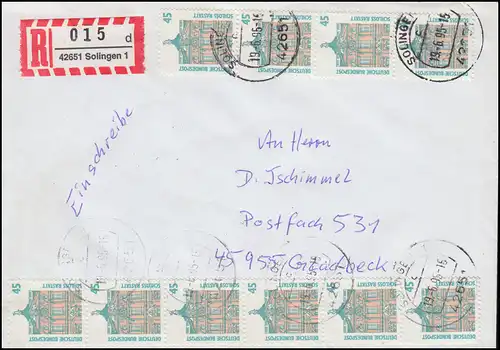 R 015 d
42651 Solingen 1
45 SCHLOSS RASTATT
DEUTSCHE BUNDESPOST
45 SCHLOSS RASTATT
DEUTSCHE BUNDESPOST
45 SCHLOSS RASTATT
DEUTSCHE BUNDESPOST
45 SCHLOSS RASTATT
DEUTSCHE BUNDESPOST
SOLINGEN
19.6.95-15
42651
SOLINGEN
19.6.95-15
42651
Einschreibe
An Herrn
D. Tschimmel
Postfach 531
45955 Gladbeck
45 SCHLOSS RASTATT
DEUTSCHE BUNDESPOST
45 SCHLOSS RASTATT
DEUTSCHE BUNDESPOST
45 SCHLOSS RASTATT
DEUTSCHE BUNDESPOST
45 SCHLOSS RASTATT
DEUTSCHE BUNDESPOST
45 SCHLOSS RASTATT
DEUTSCHE BUNDESPOST
45 SCHLOSS RASTATT
DEUTSCHE BUNDESPOST